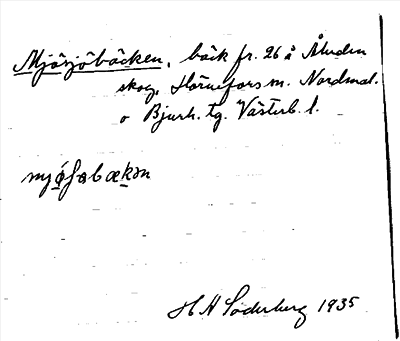 Mjösjöbäcken, bäck fr. 26 å Åheden
skog, Hörnefors sn. Nordmal.
o Bjurh. tg. Västerb. l.
H A Söderberg 1935